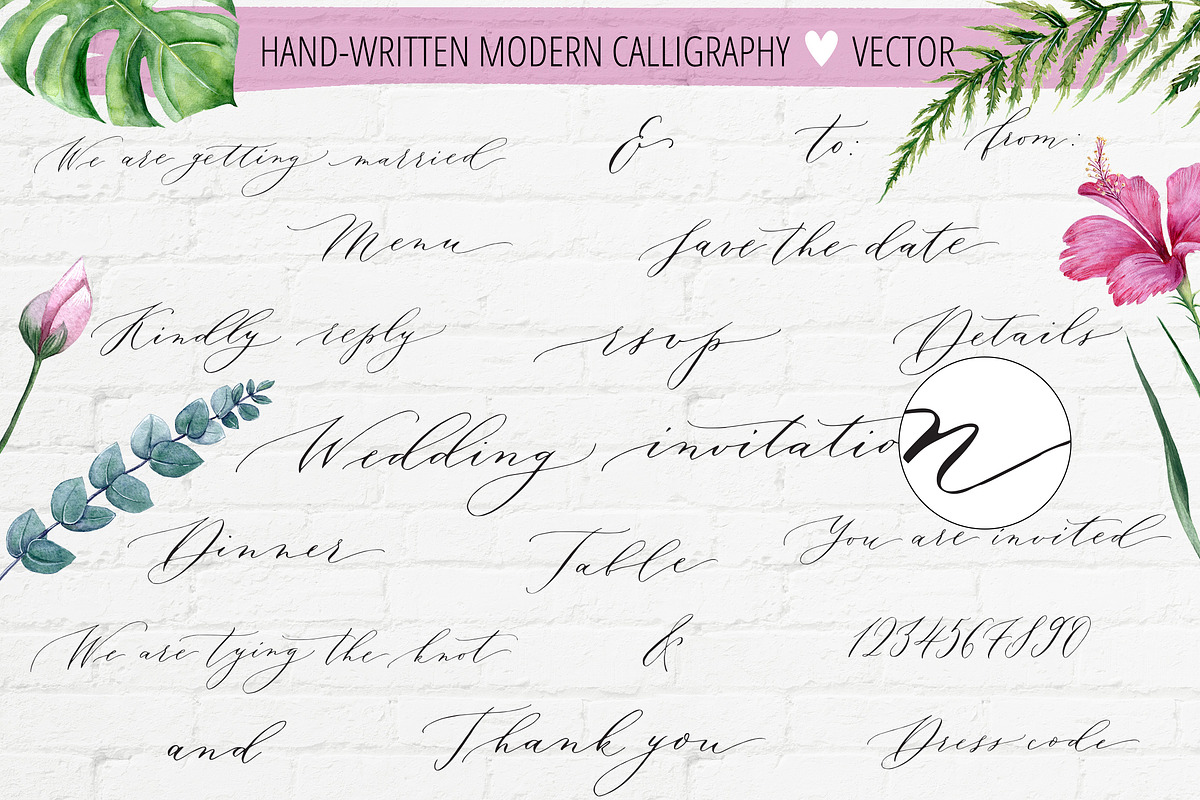 HAND-WRITTEN MODERN CALLIGRAPHY VECTOR
We are getting married & to: from:
Menu Save the date
Kindly reply rsvp Details
Wedding invitation
Dinner Table You are invited
We are tying the knot & 1234567890
and Thank you Dress code